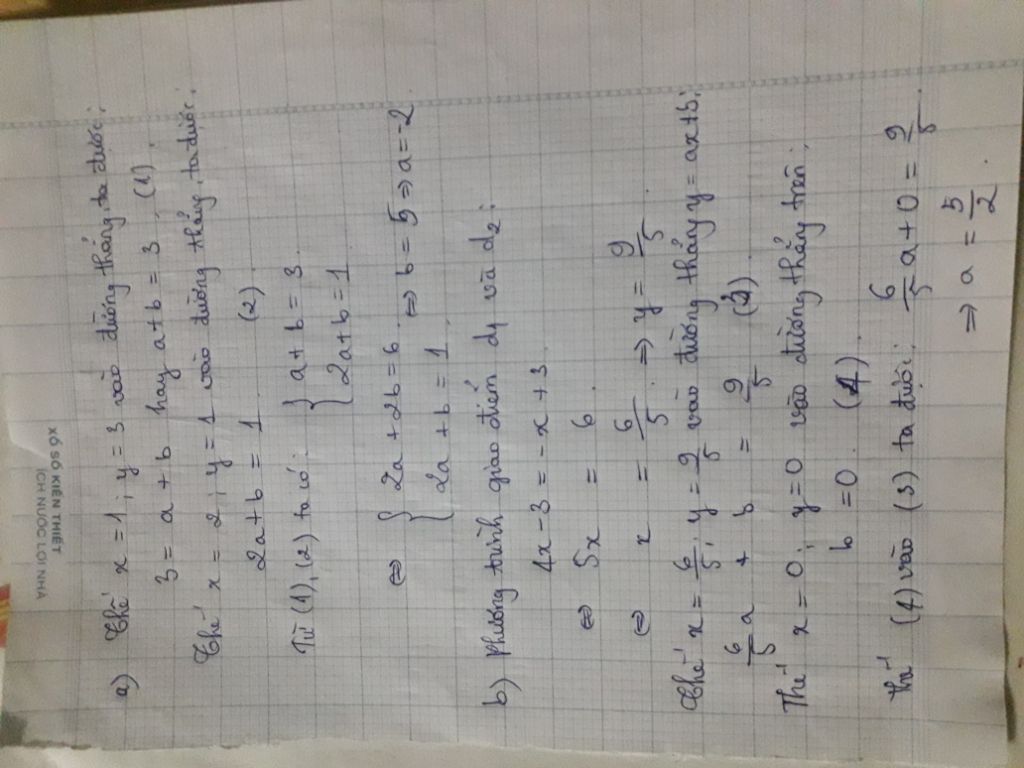 XỔ SỐ KIẾN THIẾT
ÍCH NƯỚC LỢI NHÀ
a) Thế x = 1 ; y = 3 vào đường thẳng ta được:
3 = a + b hay a + b = 3 (1).
Thế x = 2 ; y = 1 vào đường thẳng, ta được:
2a + b = 1 (2)
Từ (1), (2) ta có: { a + b = 3
{ 2a + b = 1
⇔ { 2a + 2b = 6 ⇔ b = 5 ⇒ a = -2
{ 2a + b = 1
b) Phương trình giao điểm d1 và d2:
4x - 3 = -x + 3
⇔ 5x = 6
⇔ x = 6/5 ⇒ y = 9/5
Thế x = 6/5 ; y = 9/5 vào đường thẳng y = ax + b:
6/5 a + b = 9/5 (3)
Thế x = 0 ; y = 0 vào đường thẳng trên:
b = 0. (4)
Thế (4) vào (3) ta được: 6/5 a + 0 = 9/5
⇒ a = 5/2